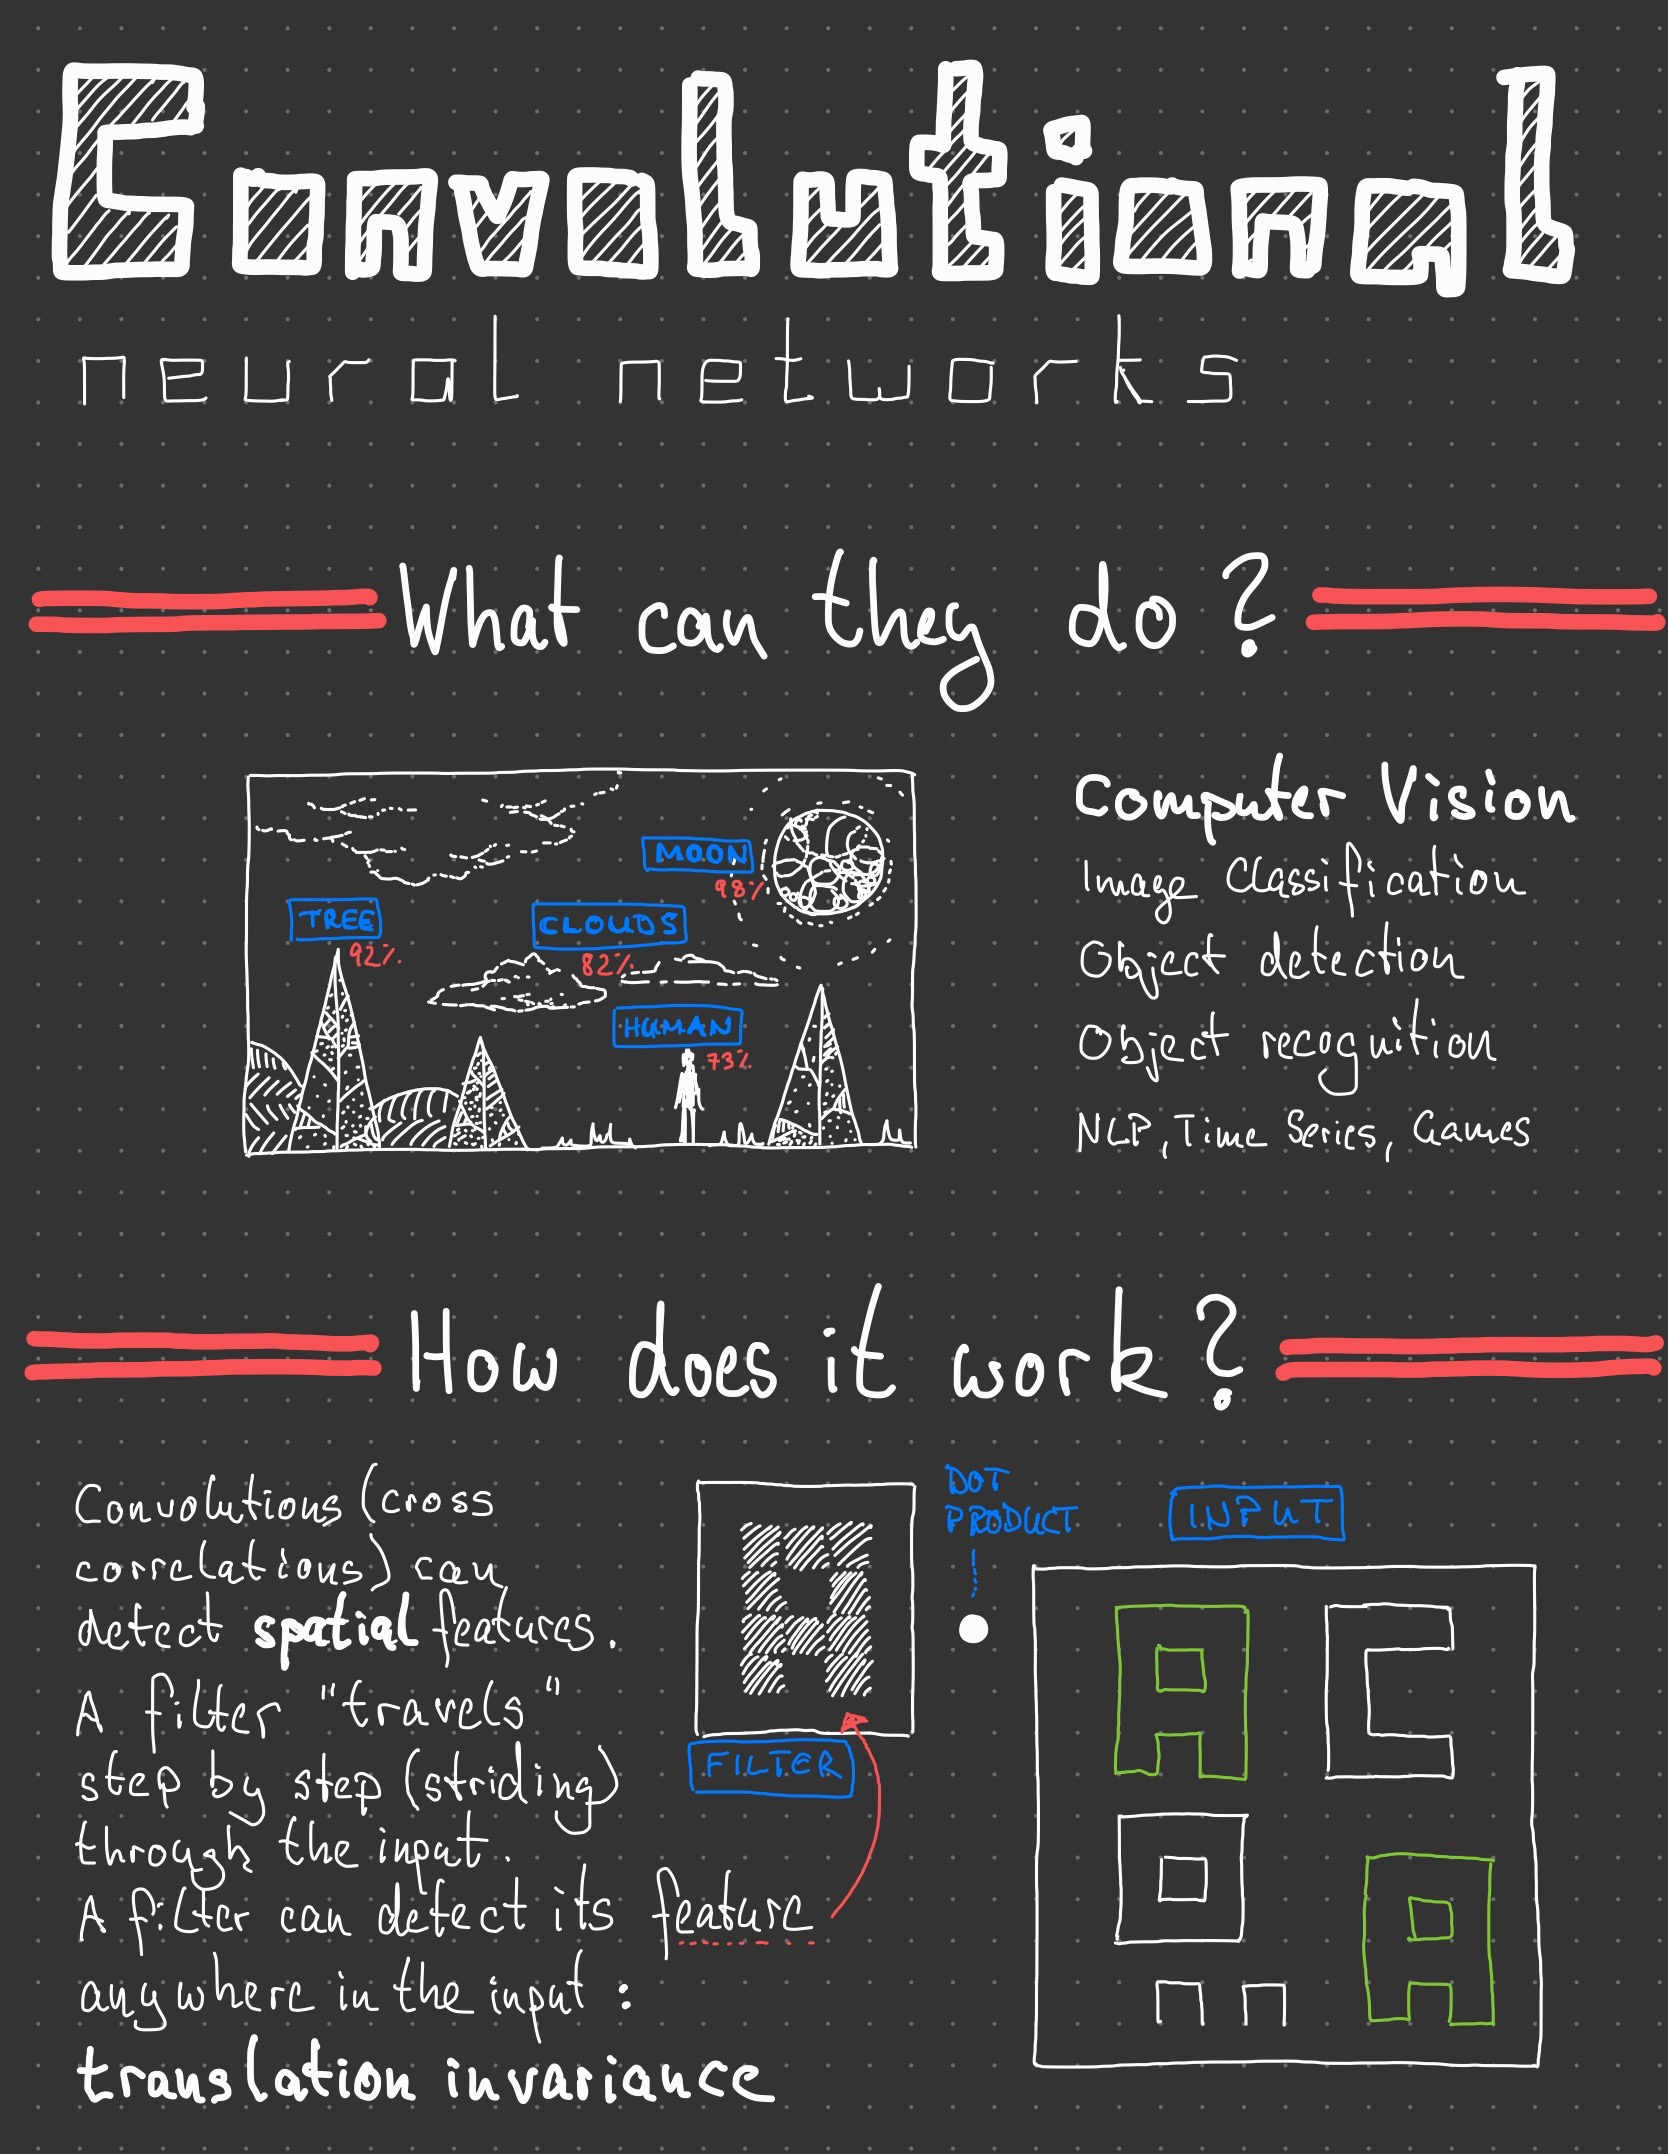 Convolutional
neural networks
What can they do?
MOON
98%
TREE
92%
CLOUDS
82%
HUMAN
73%
Computer Vision
Image Classification
Object detection
Object recognition
NLP, Time Series, Games
How does it work?
Convolutions (cross
correlations) can
detect spatial features.
A filter "travels"
step by step (striding)
through the input.
A filter can detect its feature
anywhere in the input:
translation invariance
FILTER
DOT
PRODUCT
INPUT
A C
A